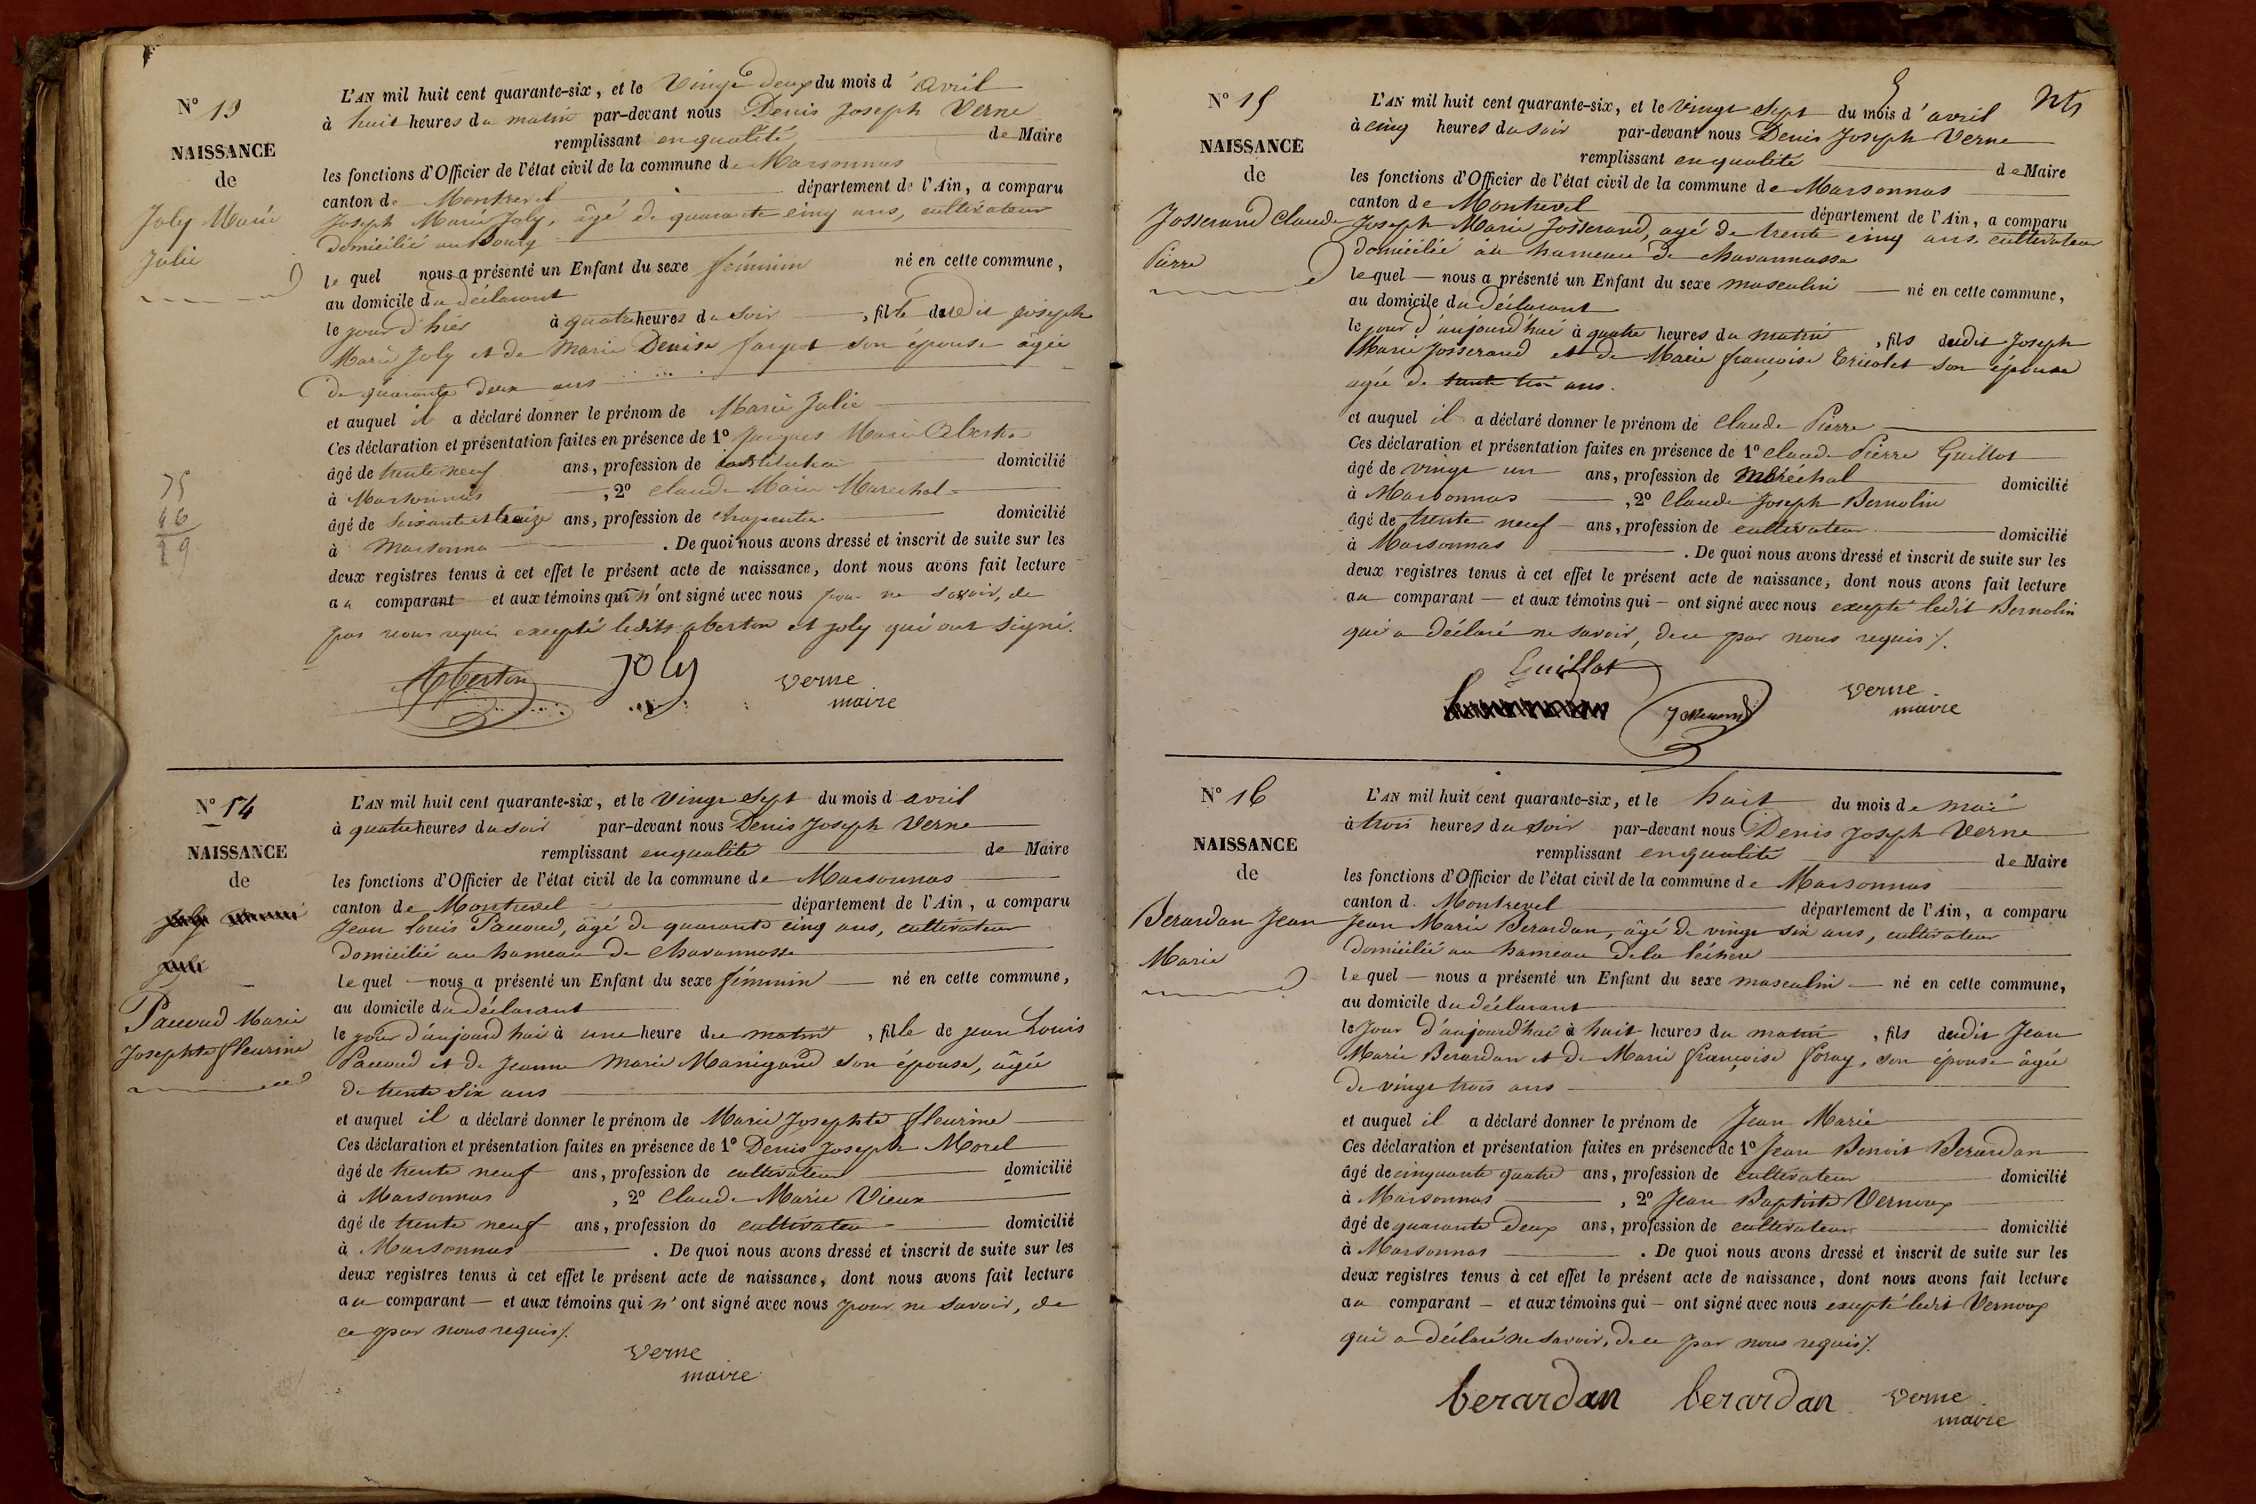 N° 13
NAISSANCE
de
Joly Marie
Julie
L'AN mil huit cent quarante-six, et le Vingt deux du mois d'avril
à huit heures du matin par-devant nous Denis Joseph Verne
remplissant en qualité de Maire
les fonctions d'Officier de l'état civil de la commune de Marsonnas
canton de Montrevel département de l'Ain, a comparu
Joseph Marie Joly, âgé de quarante cinq ans, cultivateur
domicilié au Bourg
le quel nous a présenté un Enfant du sexe féminin né en cette commune,
au domicile du déclarant
le jour d'hier à quatre heures du soir, fille dudit joseph
Marie Joly et de Marie Denise fargeot son épouse âgée
de quarante deux ans
et auquel il a déclaré donner le prénom de Marie Julie
Ces déclaration et présentation faites en présence de 1° Jacques Marie
âgé de trente neuf ans, profession de domicilié
à Marsonnas, 2° Claude Marie Marechal
âgé de Soixante et treize ans, profession de charpentier domicilié
à Marsonna. De quoi nous avons dressé et inscrit de suite sur les
deux registres tenus à cet effet le présent acte de naissance, dont nous avons fait lecture
au comparant et aux témoins qui n'ont signé avec nous pour ne savoir, de
par nous requis excepté ledits aberton et joly qui ont signé.
75
46
29
Aberton joly verne
maire
N° 14
NAISSANCE
de
Pauvud Marie
Josephte fleurine
L'AN mil huit cent quarante-six, et le vingt sept du mois d avril
à quatre heures du soir par-devant nous Denis Joseph Verne
remplissant en qualité de Maire
les fonctions d'Officier de l'état civil de la commune de Marsonnas
canton de Montrevel département de l'Ain, a comparu
Jean Louis Pauvud, âgé de quarante cinq ans, cultivateur
domicilié au hameau de Chavannosse
le quel nous a présenté un Enfant du sexe féminin né en cette commune,
au domicile du déclarant
le jour d'aujourd'hui à une heure du matin, fille de jean Louis
Pauvud et de Jeanne Marie Manigand son épouse, âgée
de trente six ans
et auquel il a déclaré donner le prénom de Marie Josephte fleurine
Ces déclaration et présentation faites en présence de 1° Denis Joseph Morel
âgé de trente neuf ans, profession de cultivateur domicilié
à Marsonnas, 2° Claude Marie Vieux
âgé de trente neuf ans, profession de cultivateur domicilié
à Marsonnas. De quoi nous avons dressé et inscrit de suite sur les
deux registres tenus à cet effet le présent acte de naissance, dont nous avons fait lecture
au comparant et aux témoins qui n'ont signé avec nous pour ne savoir, de
ce par nous requis
verne
maire
N° 15
NAISSANCE
de
Josserand Claude
Pierre
L'AN mil huit cent quarante-six, et le vingt sept du mois d'avril
à cinq heures du soir par-devant nous Denis Joseph Verne
remplissant en qualité de Maire
les fonctions d'Officier de l'état civil de la commune de Marsonnas
canton de Montrevel département de l'Ain, a comparu
Joseph Marie Josserand, agé de trente cinq ans, cultivateur
domicilié au hameau de chavannosse
le quel nous a présenté un Enfant du sexe masculin né en cette commune,
au domicile du déclarant
le jour d'aujourd'hui à quatre heures du matin, fils dudit Joseph
Marie Josserand et de Marie françoise Tricolet son épouse
agée de trente trois ans.
et auquel il a déclaré donner le prénom de Claude Pierre
Ces déclaration et présentation faites en présence de 1° claude Pierre Guillot
âgé de vingt un ans, profession de Maréchal domicilié
à Marsonnas, 2° Claude Joseph Bernolin
âgé de trente neuf ans, profession de cultivateur domicilié
à Marsonnas. De quoi nous avons dressé et inscrit de suite sur les
deux registres tenus à cet effet le présent acte de naissance, dont nous avons fait lecture
au comparant et aux témoins qui ont signé avec nous excepté ledit Bernolin
qui a déclaré ne savoir, de ce par nous requis
Guillot
Josserand verne
maire
N° 16
NAISSANCE
de
Berardan Jean
Marie
L'AN mil huit cent quarante-six, et le huit du mois de mai
à trois heures du soir par-devant nous Denis Joseph Verne
remplissant en qualité de Maire
les fonctions d'Officier de l'état civil de la commune de Marsonnas
canton d. Montrevel département de l'Ain, a comparu
Jean Marie Berardan, âgé de vingt six ans, cultivateur
domicilié au hameau de la léchere
le quel nous a présenté un Enfant du sexe masculin né en cette commune,
au domicile du déclarant
le jour d'aujourd'hui à huit heures du matin, fils dudit Jean
Marie Berardan et de Marie françoise foray, son épouse âgée
de vingt trois ans
et auquel il a déclaré donner le prénom de Jean Marie
Ces déclaration et présentation faites en présence de 1° Jean Benoit Berardan
âgé de cinquante quatre ans, profession de cultivateur domicilié
à Marsonnas, 2° Jean Baptiste Vernoux
âgé de quarante deux ans, profession de cultivateur domicilié
à Marsonnas. De quoi nous avons dressé et inscrit de suite sur les
deux registres tenus à cet effet le présent acte de naissance, dont nous avons fait lecture
au comparant et aux témoins qui ont signé avec nous excepté ledit Vernoux
qui a déclaré ne savoir, de ce par nous requis
berardan berardan verne
maire